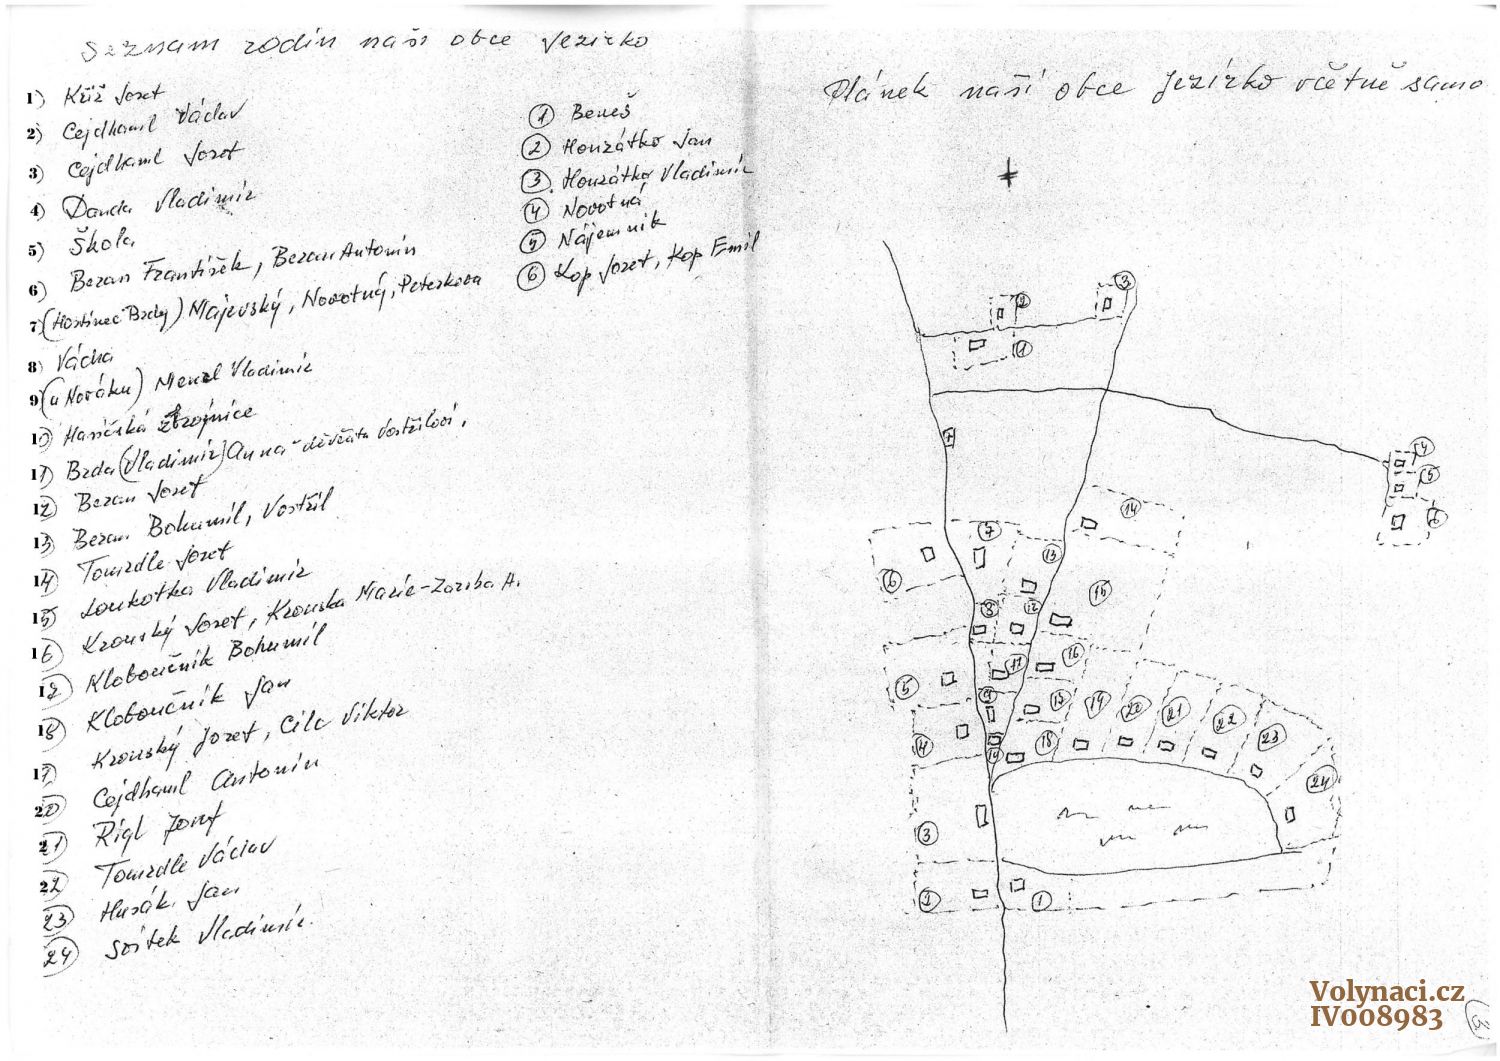 Seznam rodin naší obce Jezírko
1) Kříž Josef
2) Cejdhaml Václav
3) Cejdhaml Josef
4) Danda Vladimír
5) Škola
6) Beran František, Beran Antonín
7) (Hostinec Brdy) Majevský, Novotný, Peterkova
8) Vácha
9) (u Nováku) Menzl Vladimír
10) Hasičská zbrojnice
11) Brda (Vladimír) Anna - děvčata Vostřilovi,
12) Beran Josef
13) Beran Bohumil, Vostřil
14) Tomrdle Josef
15) Loukotka Vladimír
16) Kronský Josef, Kronska Marie - Zariba A.
17) Kloboučník Bohumil
18) Kloboučník Jan
19) Kronský Josef, Cilc Viktor
20) Cejdhaml Antonín
21) Rigl Josef
22) Tomrdle Václav
23) Husák Jan
24) Svítek Vladimír.
1 Beneš
2 Honzátko Jan
3 Honzátko Vladimír
4 Novotná
5 Nájemník
6 Kop Josef, Kop Emil
Plánek naší obce Jezírko včetně samo
2
3
1
4
5
6
14
7
13
6
15
8
12
11
16
5
9
17
19
20
21
22
23
4
10
18
24
3
2
1
Volynaci.cz
IV008983